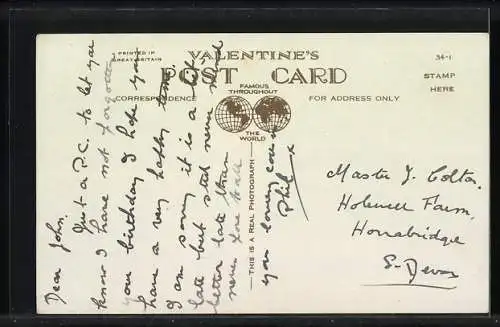 PRINTED IN
GREAT BRITAIN
VALENTINE'S
POST CARD
34-1
STAMP
HERE
FAMOUS
THROUGHOUT
THE
WORLD
CORRESPONDENCE
FOR ADDRESS ONLY
THIS IS A REAL PHOTOGRAPH
Dear John,
Just a P.C. to let you
know I have not forgotten
your birthday I hope you
have a very happy time.
I am sorry it is a bit
late but still never mind
better late than
never love Walt
you loving cousin
Phil x
Master J. Colton,
Holewell Farm,
Honabridge
S. Devon